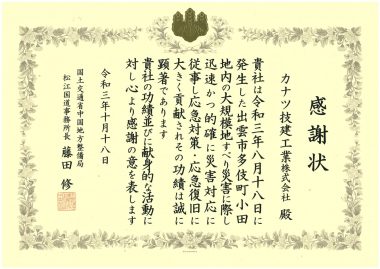 感謝状
カナツ技建工業株式会社 殿
貴社は令和三年八月十八日に
発生した出雲市多伎町小田
地内の大規模地すべり災害に際し
迅速かつ的確に災害対応に
従事し応急対策・応急復旧に
大きく貢献されその功績は誠に
顕著であります
貴社の功績並びに献身的な活動に
対し心より感謝の意を表します
令和三年十月十八日
国土交通省中国地方整備局
松江国道事務所長 藤田 修